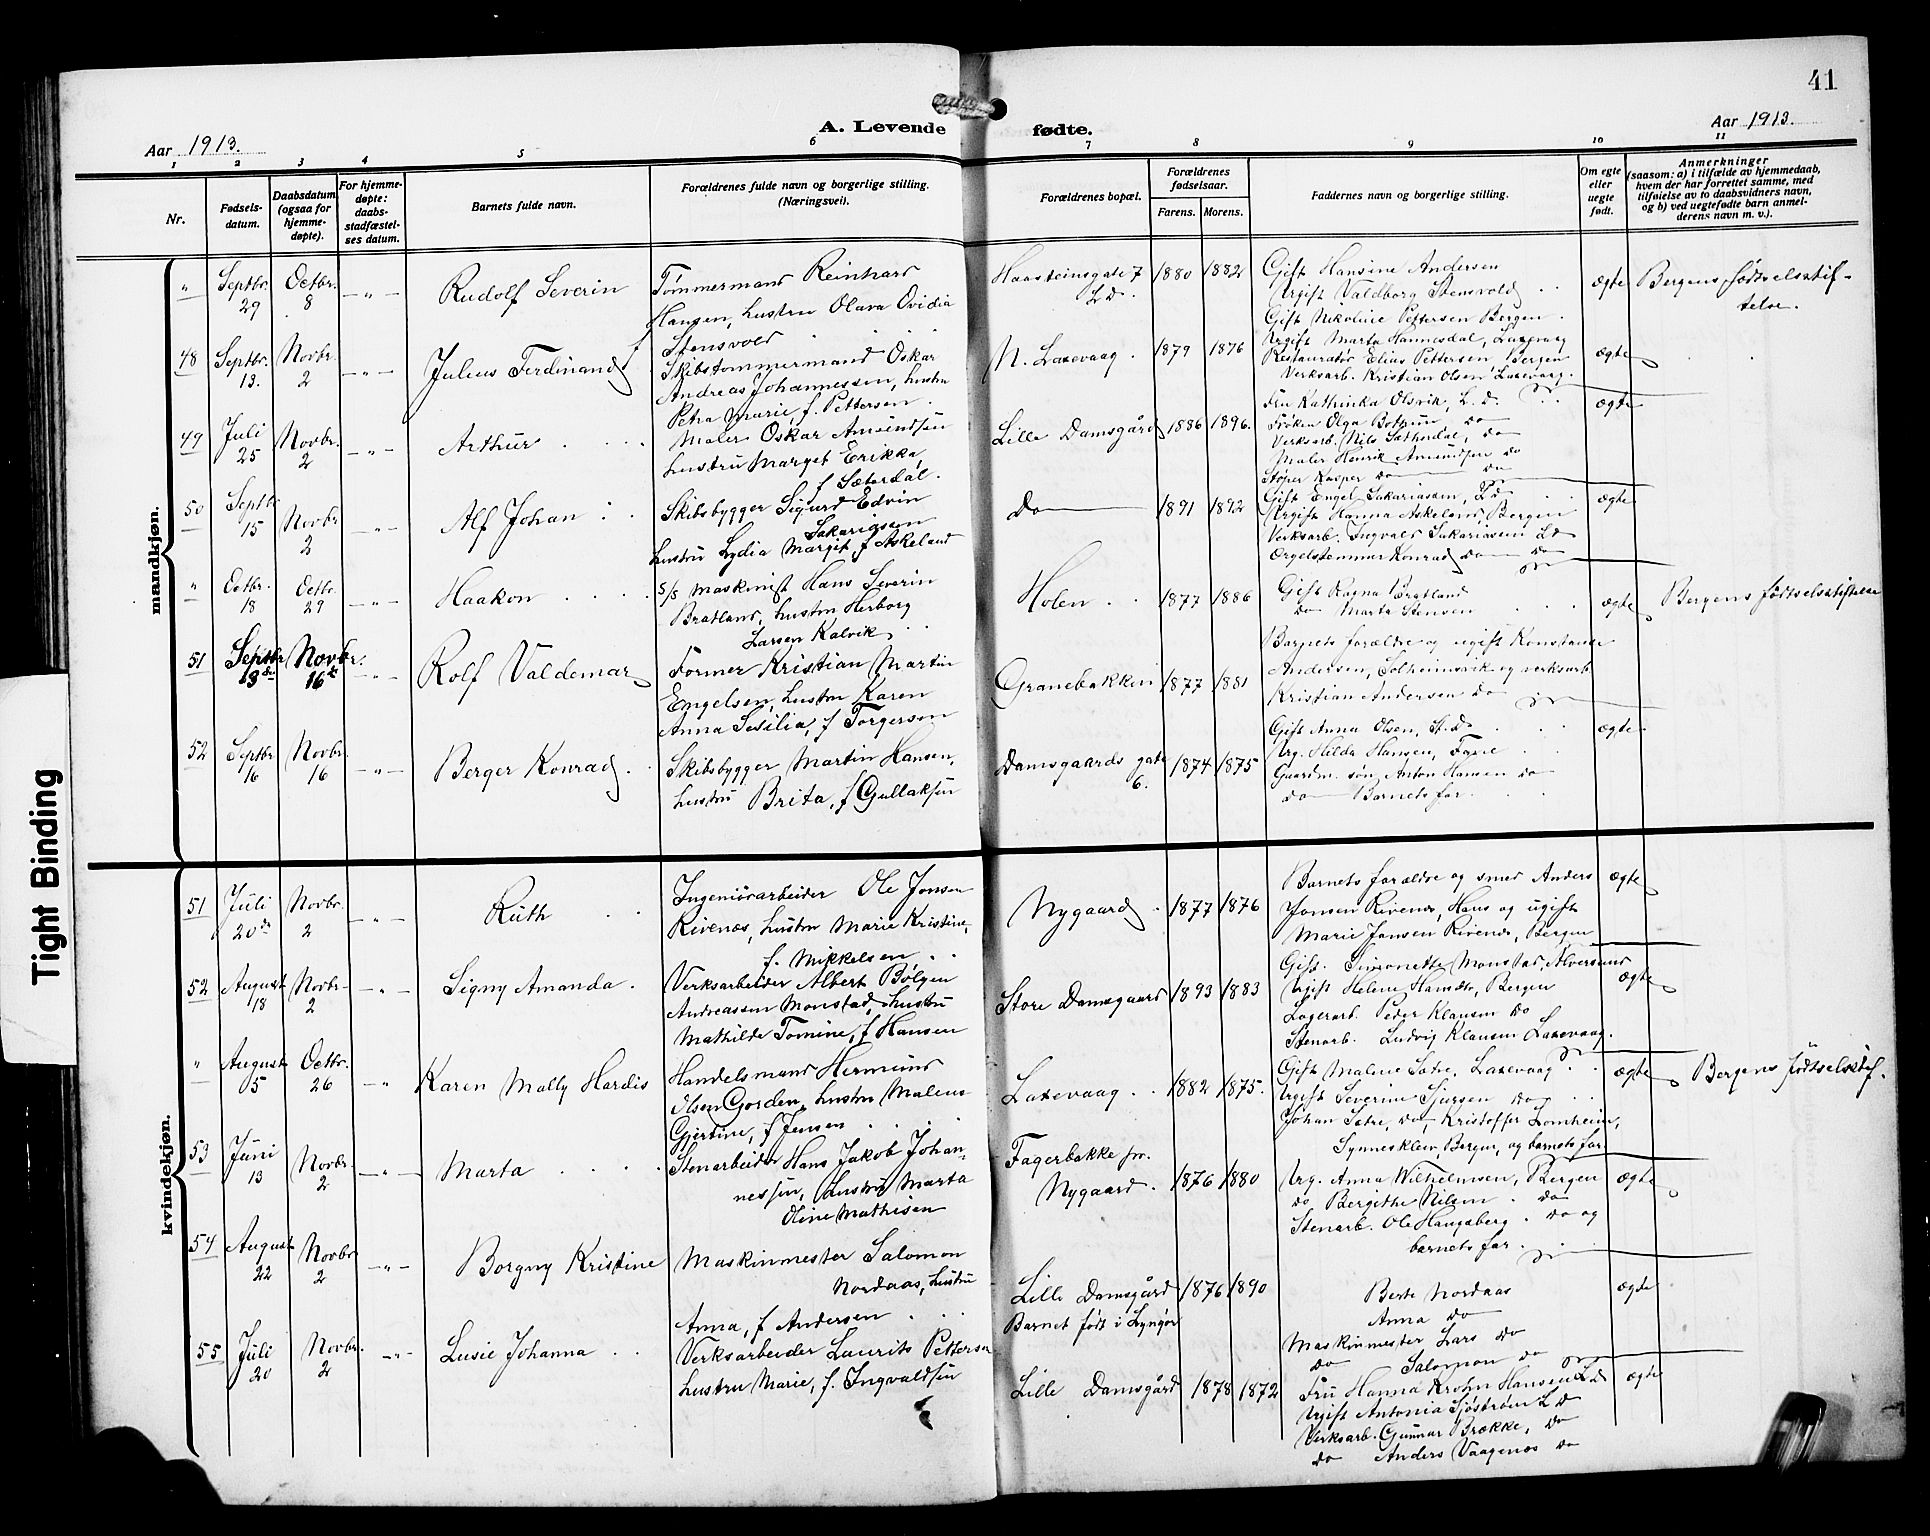 41
Aar 1913.
A. Levende fødte.
Aar 1913.
1 2 3 4 5 6 7 8 9 10 11
Nr.
Fødsels-
datum.
Daabsdatum
(ogsaa for
hjemme-
døpte).
For hjemme-
døpte:
daabs-
stadfæstel-
ses datum.
Barnets fulde navn.
Forældrenes fulde navn og borgerlige stilling.
(Næringsvei).
Forældrenes bopæl.
Forældrenes
fødselsaar.
Farens. Morens.
Faddernes navn og borgerlige stilling.
Om egte
eller
uegte
født.
Anmerkninger
(saasom: a) i tilfælde av hjemmedaab,
hvem der har forrettet samme, med
tilføielse av to daabsvidners navn,
og b) ved uegtefødte barn anmel-
derens navn m. v.).
mandkjøn.
" Septbr. 29 Octbr. 8 — " — Rudolf Severin
Tømmermand Reinhard
Hansen, hustru Olava Ovidia
f Stensvold
Haasteinsgate 7
L.D.
1880 1882
Gift Hansine Andersen
Ugift Valdborg Stensvold
Gift Nikoline Pettersen Bergen.
ægte
Bergens fødselsstif-
telse.
48 Septbr. 13. Novbr. 2 — " — Julius Ferdinand
Skibstømmermand Oskar
Andreas Johannessen, hustru
Petra Marie, f. Pettersen.
N. Laxevaag. 1879 1876
Ugift Marta Hannesdal, Laxevaag
Restauratør Elias Pettersen, Bergen
Verksarb. Kristian Olsen Laxevaag.
ægte
49 Juli 25 Novbr. 2 — " — Arthur
Maler Oskar Amundsen
hustru Marget Erikka,
f Sæterdal.
Lille Damsgård 1886 1896.
Fru Kathinka Olsvik, L.D.
Frøken Olga Do
Verksarb. Nils Sætherdal, Do
Maler Henrik Amundsen Do
Støper Kasper Do Do
ægte
50 Septbr 15 Novbr 2 — " — Alf Johan
Skibsbygger Sigurd Edvin
Sakariasen
hustru Lydia Margit, f Askeland
Do 1891 1892
Gift Engel Sakariasen, L.D
Ugift Hanna Askeland, Bergen
Verksarb. Ingvald Sakariasen L D
Orgelstemmer Konrad Do Do
ægte
" Octbr. 18 Octbr. 29 — " — Haakon
S/S maskinist Hans Severin
Bratland, hustru Herborg
Larsen Kalvik
Holen 1877 1886
Gift Ragna Bratland
Do Marta Stensen
ægte
Bergens fødselsstiftelse
51 Septbr 13de Novbr. 16de — " — Rolf Valdemar
Former Kristian Martin
Engelsen, hustru Karen
Anna Sesilia, f Torgersen
Granebakken 1877 1881
Barnets forældre og ugift Konstanse
Andersen, Solheimsvik og verksarb.
Kristian Andersen Do
52 Septbr 16 Novbr. 16 — " — Berger Konrad.
Skibsbygger Martin Hansen,
hustru Brita, f Gullaksen
Damsgaards gate
6.
1874 1875
Gift Anna Olsen, St. D.
Ug. Hilda Hansen,
Gaardm. søn Anton Hansen Do
Do Barnets far.
ægte
kvindekjøn.
51 Juli 20de Novbr. 2 — " — Ruth
Ingeniørarbeider Ole Jonsen
Rivenæs, hustru Marie Kristine,
f. Mikkelsen
Nygaard. 1877 1876
Barnets forældre og smed Anders
Jonsen Rivenæs, Haus og ugift
Marie Jonsen Rivenæs, Bergen
ægte
52 August 18 Novbr 2 — " — Signy Amanda.
Verksarbeider Albert Bølgen
Andreassen Monstad, hustru
Mathilde Tomine, f Hansen
Store Damsgaard 1893 1883
Gift. Simonette Monstad, Alversund
Ugift Helene Bergen
Lagerarb. Peder Klausen Do
Stenarb. Ludvig Klausen Laxevaag.
ægte
" August 5 Octbr. 26 — " — Karen Mally Hardis
Handelsmand Hermund
Olsen Gorden, hustru Malene
Gjertine, f Jensen
Laxevaag 1882 1875.
Gift Malene Sætre, Laxevaag
Ugift Severine Sjursen Do
Johan Sætre, Do, Kristoffer Lomheim,
Synneskleiv, Bergen, og barnets far
ægte
Bergens fødselsstif.
53 Juni 13 Novbr. 2 — " — Marta
Stenarbeider Hans Jakob Johan-
nessen, hustru Marta
Oline Mathisen
Fagerbakke pr.
Nygaard. 1876 1880
Ug. Anna Wilhelmsen, Bergen
Do Bergithe Nilsen. Do
Stenarb. Ole Haugsberg. Do og
barnets far.
ægte
54 August 22 Novbr 2 — " — Borgny Kristine
Maskinmester Salomon
Nordaas, hustru
Anna, f Andersen
Lille Damsgård
Barnet født i Lyngør
1876 1890
Berte Nordaas
Anna Do
Maskinmester Lars Do
Do Salomon Do
ægte
55 Juli 20 Novbr. 2 — " — Lusie Johanna
Verksarbeider Laurits Pettersen
hustru Marie, f. Ingvaldsen
Lille Damsgård 1878 1872
Fru Hanna Krohn Hansen L D
Ugift Antonia Sjøstrøm L D
Verksarb. Gunnar Brække, Do
Do Anders Vaagenes Do
ægte
Tight Binding